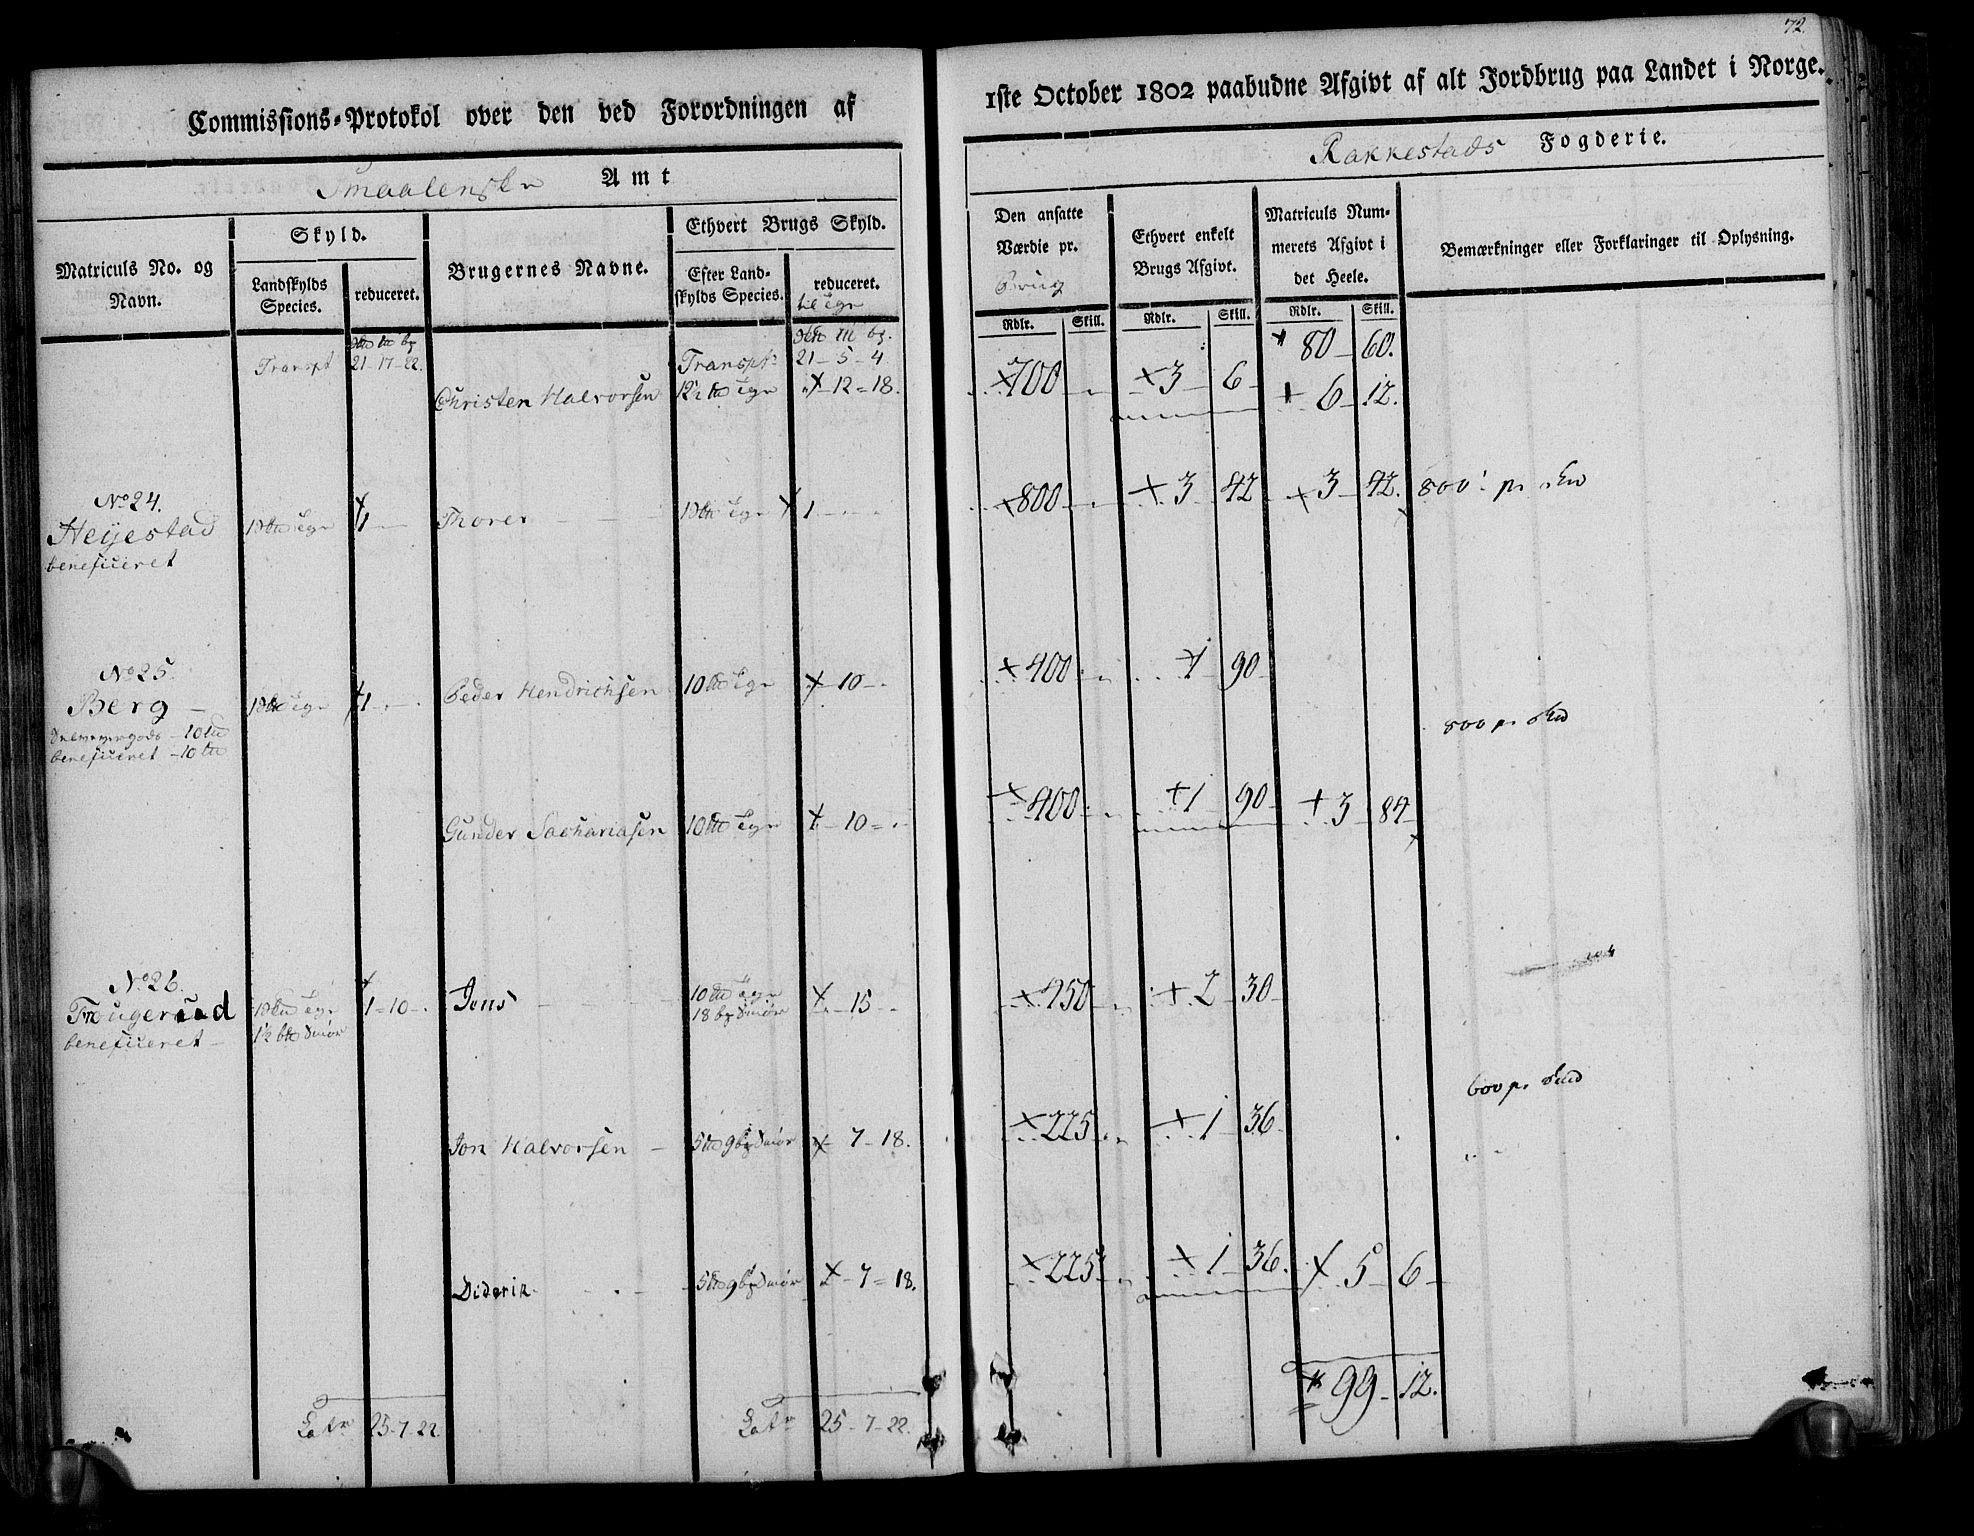 72.
Commissions-Protokol over den ved Forordningen af
1ste October 1802 paabudne Afgivt af alt Jordbrug paa Landet i Norge.
Smaalenske Amt
Rakkestads Fogderie.
Matriculs No. og Navn.
Skyld.
Landskylds Species.
reduceret.
Brugernes Navne.
Ethvert Brugs Skyld.
Efter Landskylds Species.
reduceret.
til Tgr
Den ansatte Værdie pr.
Brug
Ethvert enkelt Brugs Afgivt.
Matriculs Nummerets Afgivt i det Heele.
Bemærkninger eller Forklaringer til Oplysning.
Rdlr. Skill. Rdlr. Skill. Rdlr. Skill.
Transpt 21-17-22. Transpt 21-5-4 80-60.
Christen Halvorsen -12=18. 700 3 6 6-12.
No 24.
Heyestad 1 Thorer 1 800 3 42 3 42. 800 pr
beneficeret
No 25.
Berg 1 Peder Hendrichsen 10 - 10 - 400 1 90
10
beneficeret - 10
800 pr
Gunder Sachariasen 10 - 10 = 400 1 90 3 84
No 26.
Trougeruud 1=10-. Jens 10 - 15 - 450 2 30
18 Smør
beneficeret - 1½ Smør
600 pr
Jon Halvorsen 5 9 Smør - 7-18. 225 1 36
Diderik 5 9 Smør - 7=18. 225 1 36. 5 6
99-12.
Latr 25-7-22 Latr 25-7-22.